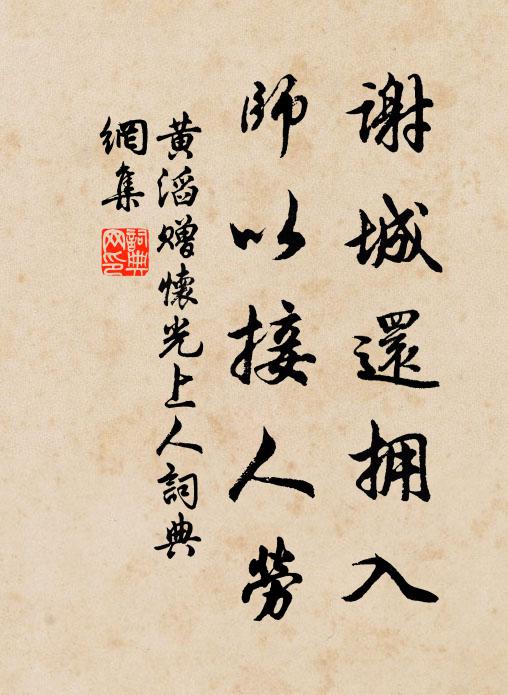 謝城還拥入
師以接人勞
黃滔贈懷光上人詞典
網集
詞典網印